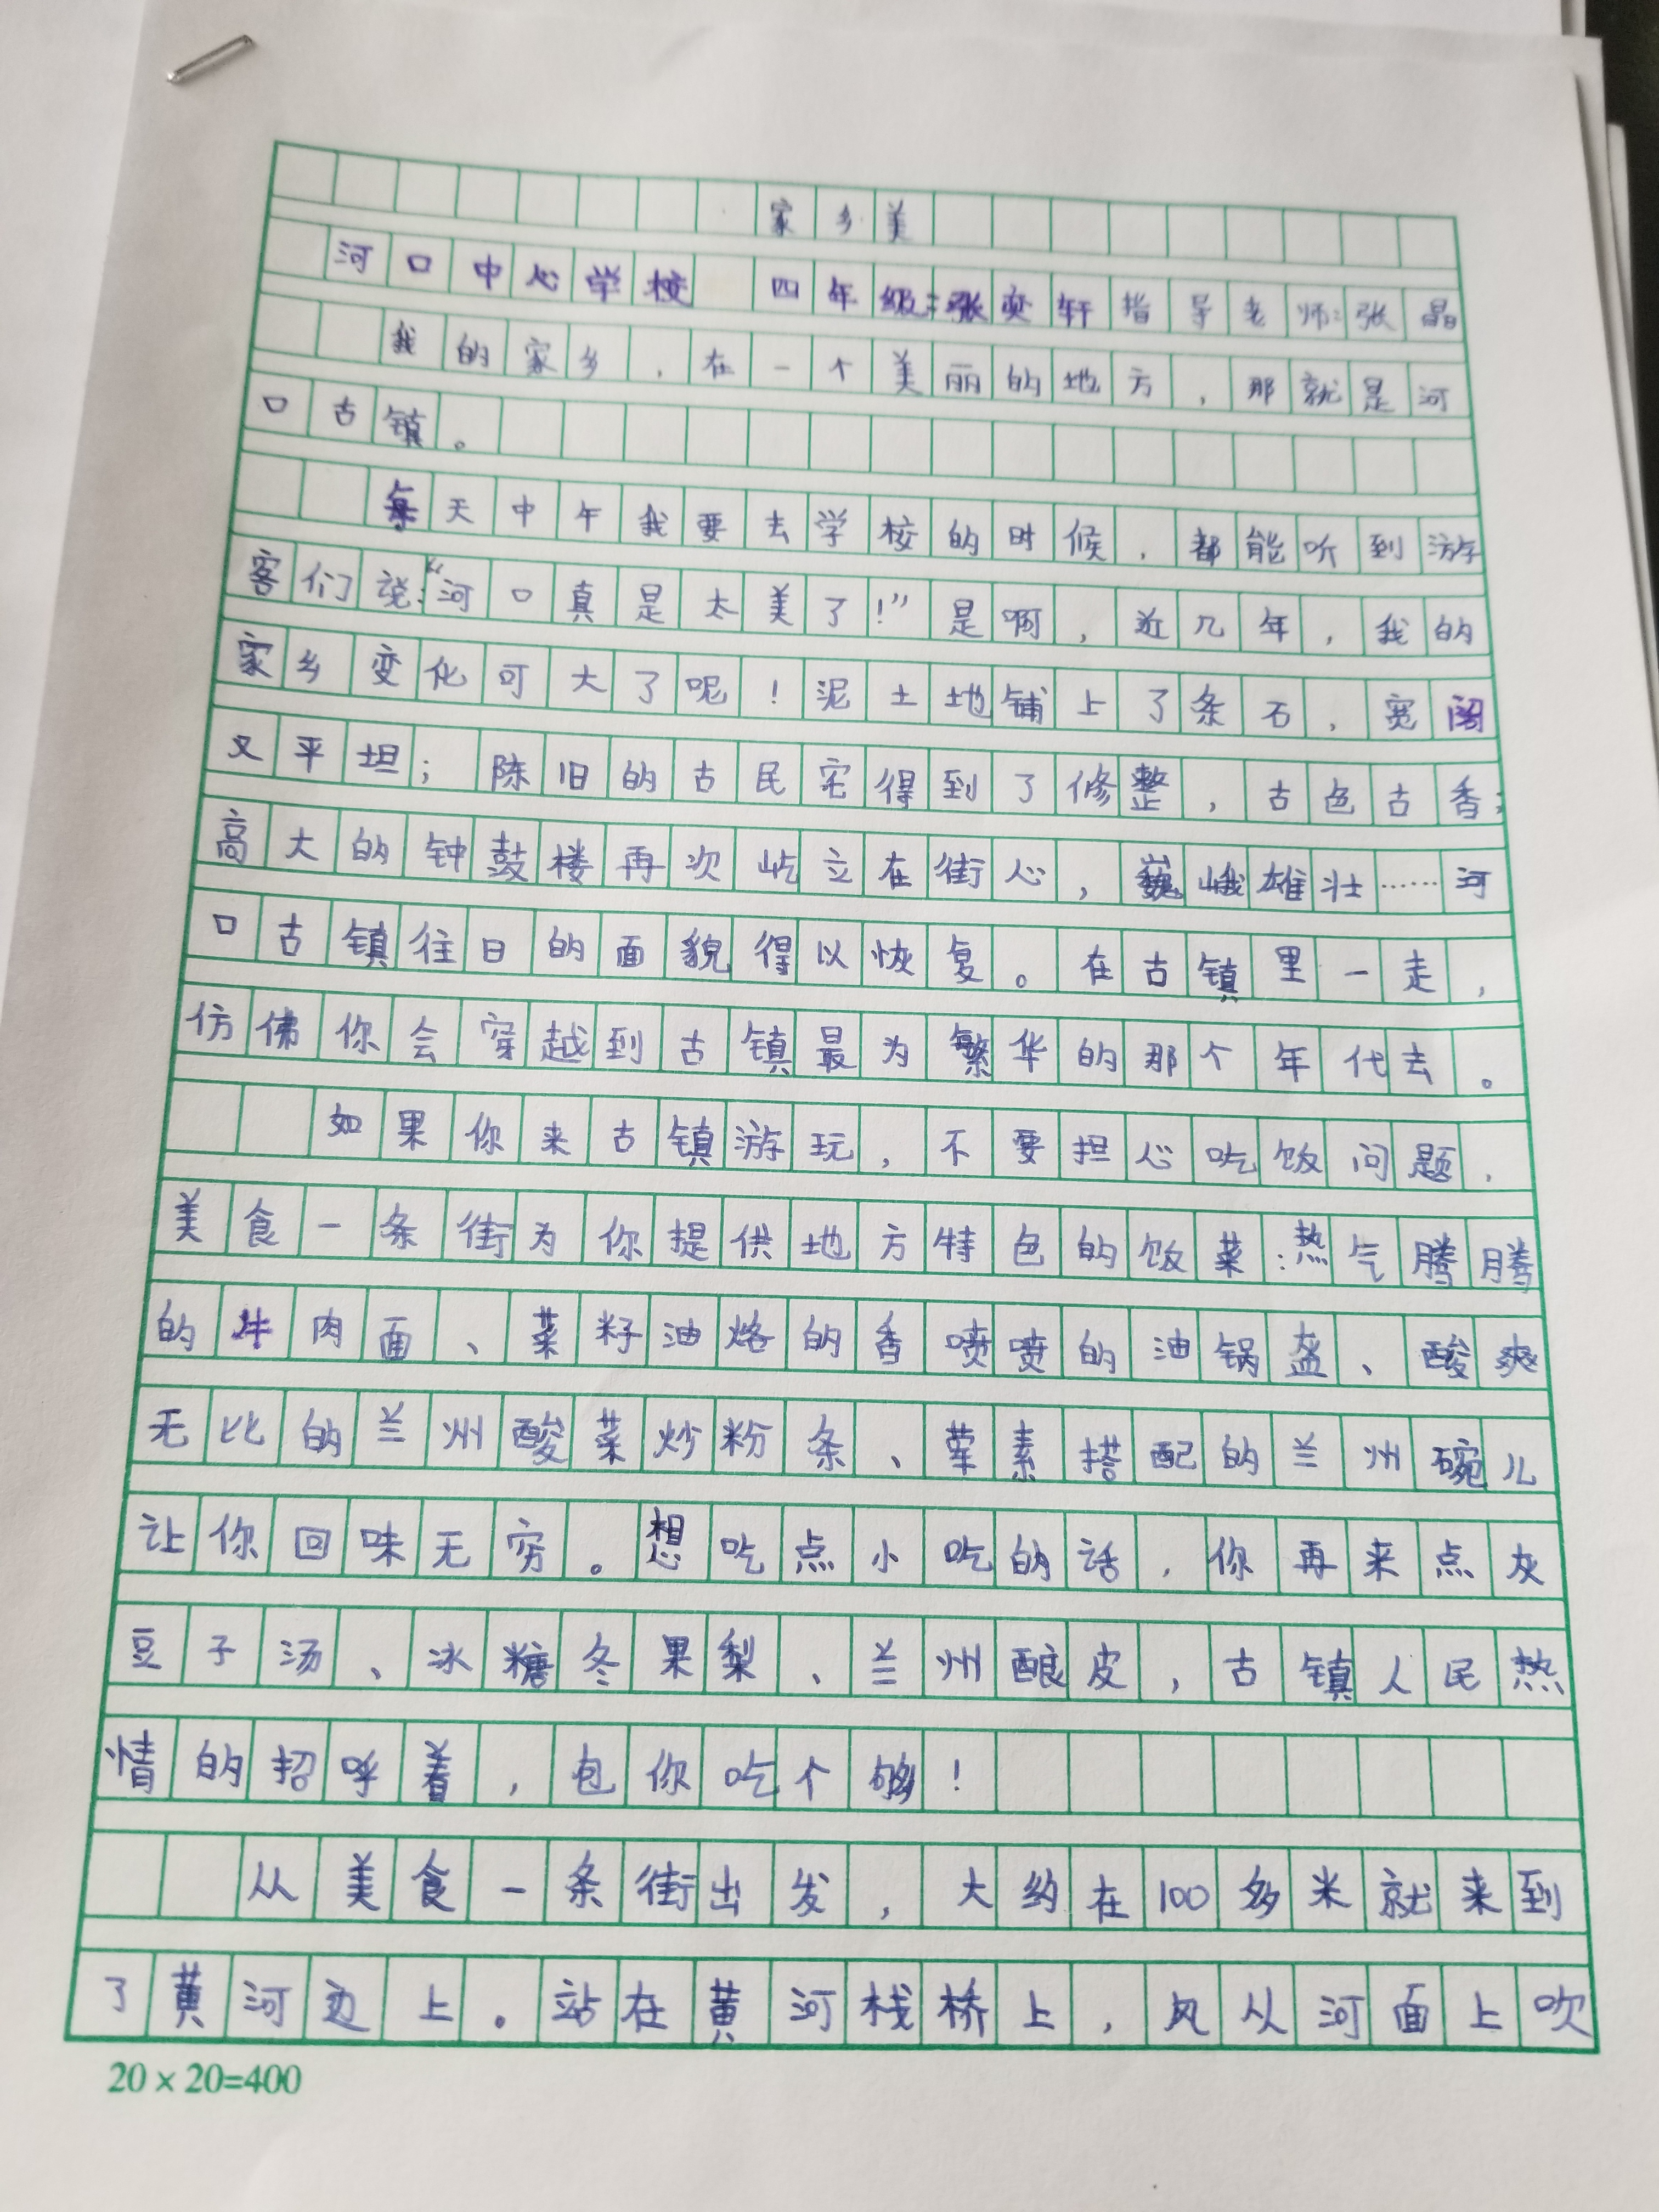 家乡美
河口中心学校 四年级:张奕轩指导老师:张晶
我的家乡,在一个美丽的地方,那就是河
口古镇。
每天中午我要去学校的时候,都能听到游
客们说:“河口真是太美了!”是啊,近几年,我的
家乡变化可大了呢!泥土地铺上了条石,宽阔
又平坦;陈旧的古民宅得到了修整,古色古香;
高大的钟鼓楼再次屹立在街心,巍峨雄壮……河
口古镇往日的面貌得以恢复。在古镇里一走,
仿佛你会穿越到古镇最为繁华的那个年代去。
如果你来古镇游玩,不要担心吃饭问题,
美食一条街为你提供地方特色的饭菜:热气腾腾
的牛肉面、菜籽油烙的香喷喷的油锅盔、酸爽
无比的兰州酸菜炒粉条、荤素搭配的兰州碗儿
让你回味无穷。想吃点小吃的话,你再来点灰
豆子汤、冰糖冬果梨、兰州酿皮,古镇人民热
情的招呼着,包你吃个够!
从美食一条街出发,大约在100多米就来到
了黄河边上。站在黄河栈桥上,风从河面上吹
20×20=400